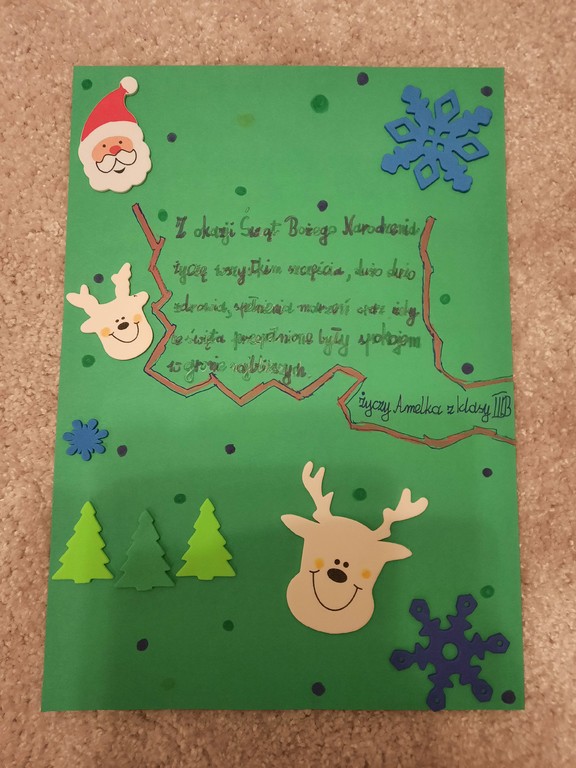 Z okazji Świąt Bożego Narodzenia
życzę wszystkim szczęścia, dużo dużo
zdrowia, spełnienia marzeń oraz żeby
te święta przepełnione były spokojem
w gronie najbliższych.
życzy Amelka z klasy III B